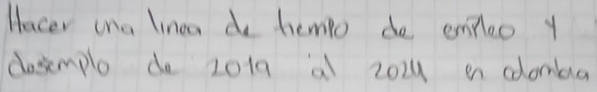 Hacer una linea de tiempo de empleo y
desemplo de 2019 al 2024 en colombia